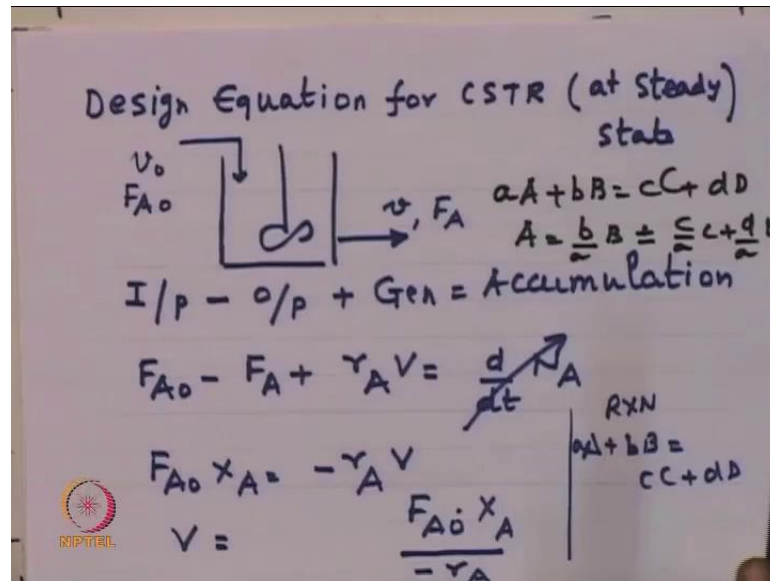 Design Equation for CSTR (at Steady)
State
v₀
F_A₀
v, F_A
aA + bB = cC + dD
A = b/a B ± c/a C + d/a
I/p - O/p + Gen = Accumulation
F_A₀ - F_A + r_A V = d/dt N_A
RXN
aA + bB =
cC + dD
F_A₀ X_A = -r_A V
V = F_A₀ X_A / -r_A
NPTEL